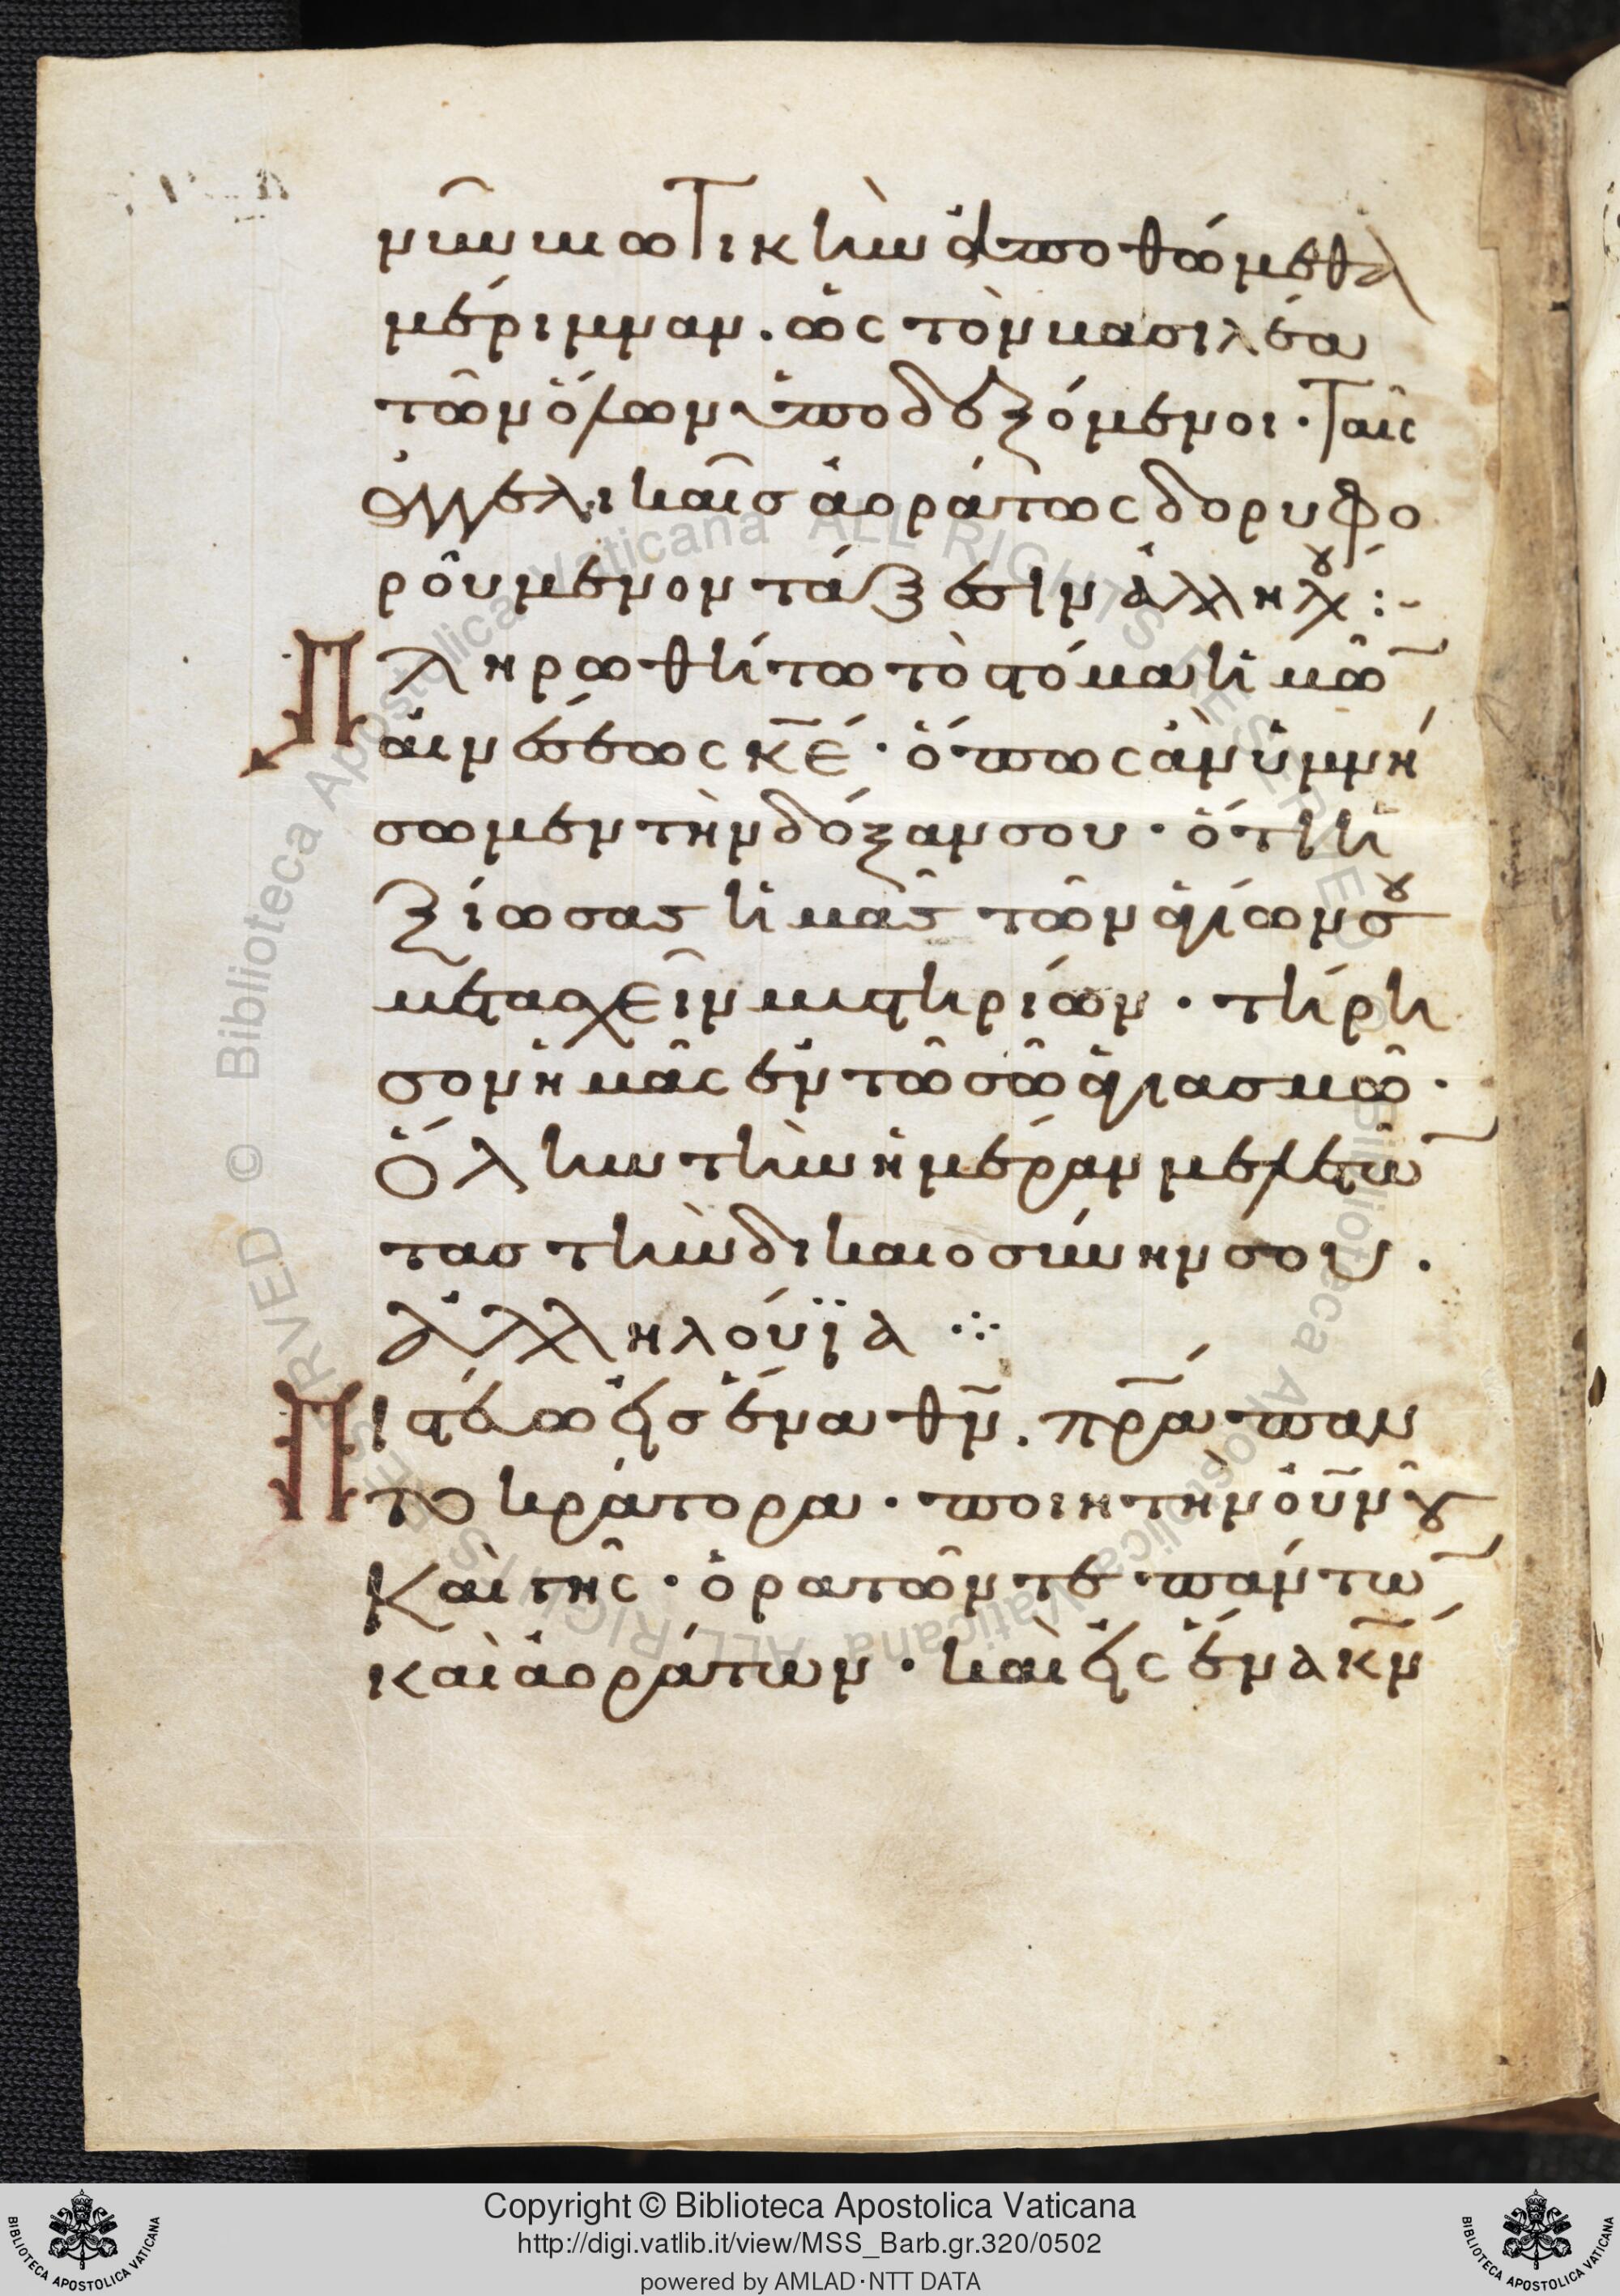 νῦν βιωτικὴν ἀποθώμεθα
μέριμναν. ὡς τὸν βασιλέα
τῶν ὅλων ὑποδεξόμενοι. ταῖς
ἀγγελικαῖσ ἀοράτως δορυφο
ρούμενον τάξεσιν ἀλληλου:-
Πληρωθήτω τὸ στόμα ἡμῶ
αἰνέσεως κ̅ε̅· ὅπως ἀνυμνή
σωμεν τὴν δόξαν σου· ὅτι ἠ
ξίωσας ἡμᾶς τῶν ἁγίων σου
μετασχεῖν μυστηρίων· τήρη
σον ἡμᾶς ἐν τῶ σῶ ἁγιασμῶ·
ὅλην τὴν ἡμέραν μελετῶ
τας τὴν δικαιοσύνην σου.
ἀλληλούϊα ⁘
Πιστεύω εἰσ ἕνα θ̅ν̅. π̅ρ̅α̅ παν
τοκράτορα· ποιητὴν ο̅υ̅ν̅ου
καὶ γῆς· ὁρατῶν τε πάντω
καὶ ἀοράτων· καὶ εἰς ἕνα κ̅ν̅
Copyright © Biblioteca Apostolica Vaticana
http://digi.vatlib.it/view/MSS_Barb.gr.320/0502
powered by AMLAD·NTT DATA